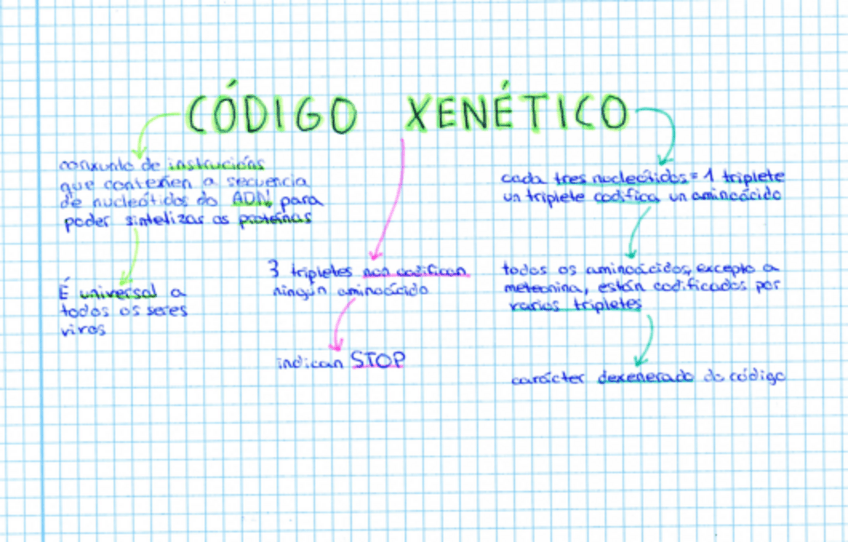 CÓDIGO XENÉTICO
conxunto de instrucións
que conteñen a secuencia
de nucleótidos do ADN para
poder sintetizar as proteínas
É universal a
todos os seres
vivos
3 tripletes non codifican
ningún aminoácido
indican STOP
cada tres nucleótidos = 1 triplete
un triplete codifica un aminoácido
todos os aminoácidos, excepto a
meteonina, están codificados por
varios tripletes
carácter dexenerado do código